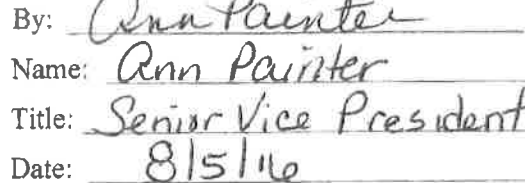 By: Ann Painter
Name: Ann Painter
Title: Senior Vice President
Date: 8/5/16